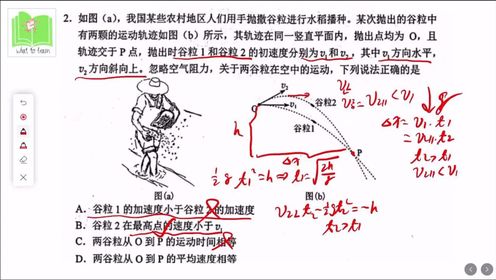 what to learn
2. 如图(a)，我国某些农村地区人们用手抛撒谷粒进行水稻播种。某次抛出的谷粒中
有两颗的运动轨迹如图(b)所示，其轨迹在同一竖直平面内，抛出点均为 O，且
轨迹交于 P 点，抛出时谷粒 1 和谷粒 2 的初速度分别为v₁和v₂，其中v₁方向水平，
v₂方向斜向上。忽略空气阻力，关于两谷粒在空中的运动，下列说法正确的是
O
v₂
v₁
谷粒2
谷粒1
P
h
Δx
g
V₂∥ < V₁
Δx = V₁·t₁
= V₂∥·t₂
t₂ > t₁
V₂∥ < V₁
½gt₁² = h ⇒ t₁ = √(2h/g)
图(a)
图(b)
A．谷粒 1 的加速度小于谷粒 2 的加速度
V₂⊥t₂ − ½gt₂² = −h
B．谷粒 2 在最高点的速度小于 v₁
t₂ > t₁
C．两谷粒从 O 到 P 的运动时间相等
D．两谷粒从 O 到 P 的平均速度相等